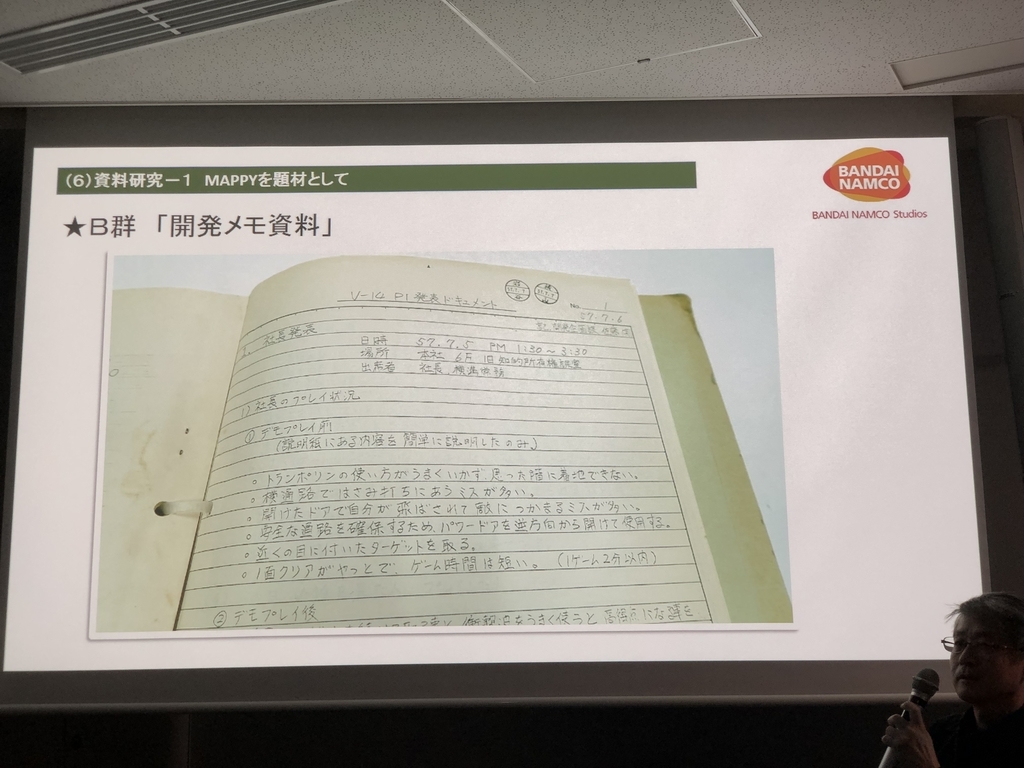 (6)資料研究－1 MAPPYを題材として
BANDAI
NAMCO
BANDAI NAMCO Studios
★B群 「開発メモ資料」
V-14 P1 発表ドキュメント
No. 1
57.7.6
1. 社長発表
日時 57.7.5 PM 1:30～3:30
場所 本社 6F 旧知的所有権
出席者 社長、横
1) 社長のプレイ状況
① デモプレイ前
(説明紙にある内容を簡単に説明したのみ)
○ トランポリンの使い方がうまくいかず、思った階に着地できない。
○ 横通路ではさみ打ちにあうミスが多い。
○ 開けたドアで自分が飛ばされて敵につかまるミスが多い。
○ 安全な通路を確保するため、パワードアを逆方向から開けて使用する。
○ 近くの目に付いたターゲットを取る。
○ 1面クリアがやっとで、ゲーム時間は短い。 (1ゲーム2分以内)
② デモプレイ後
をうまく使うと高得点になる